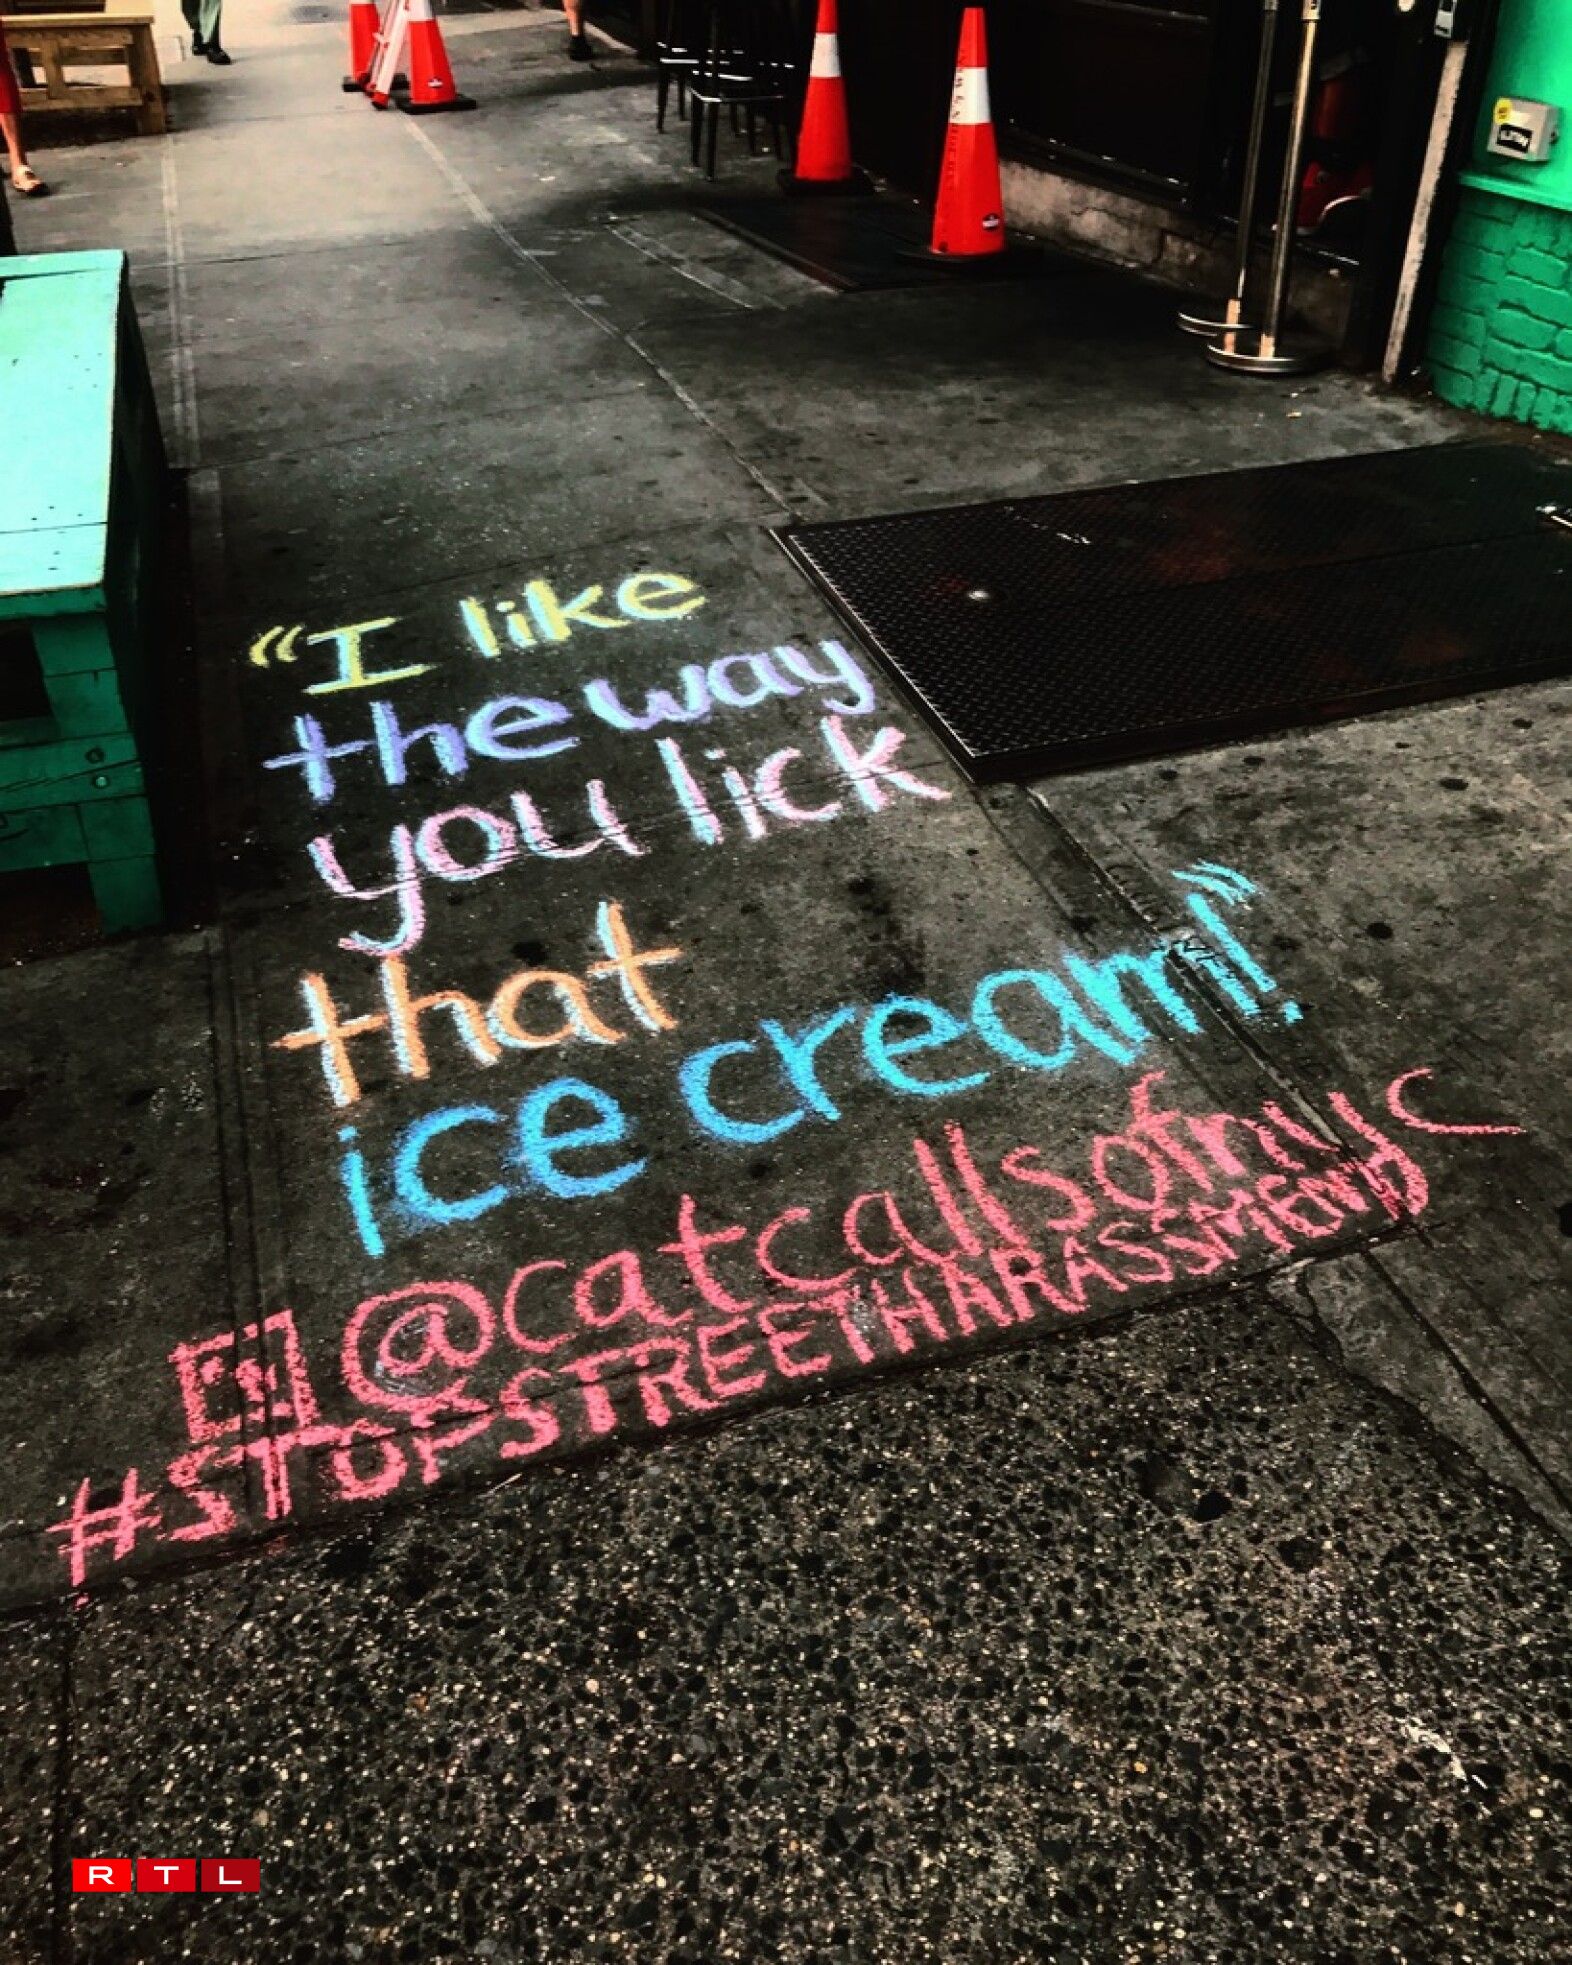 “I like
the way
you lick
that
ice cream!”
@catcallsofnyc
#STOPSTREETHARASSMENT
RTL